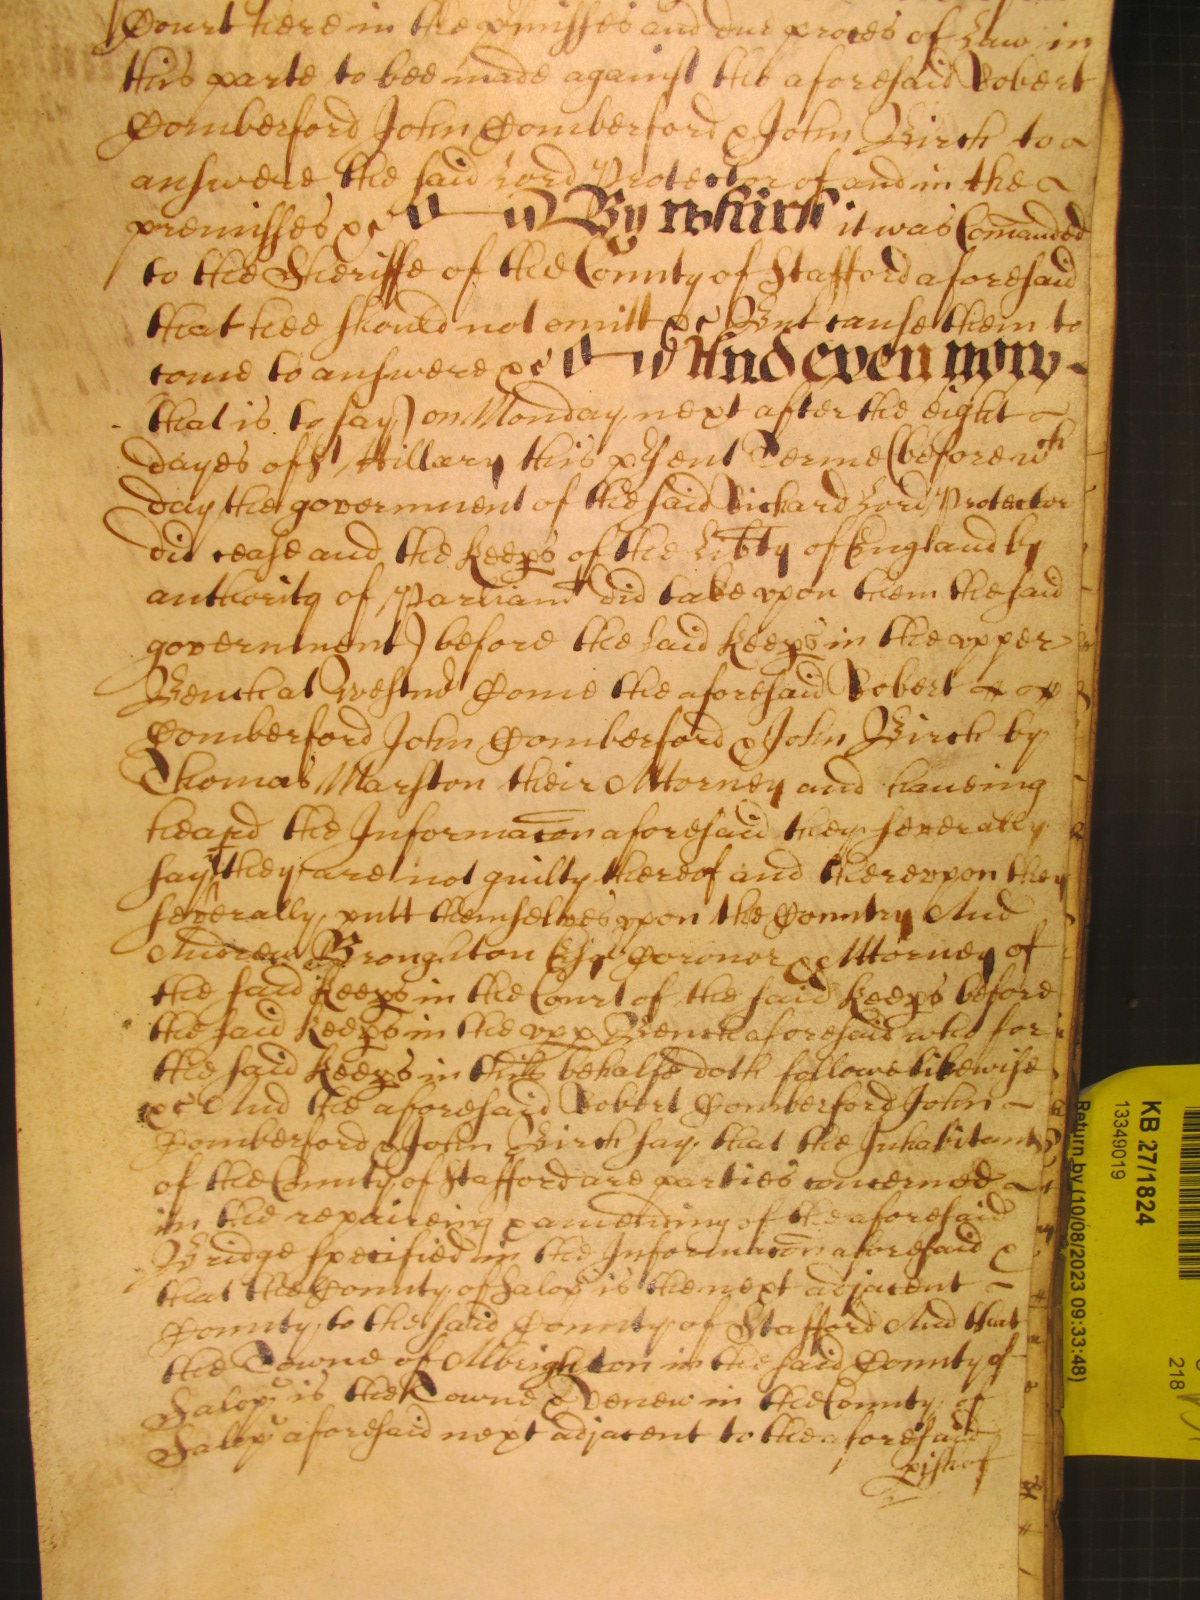 Court here in the pmisses and due proces of Law in
this parte to bee made against the aforesaid Robert
Comberford John Comberford & John Birch to
answere the said Lord Protector of and in the
premisses &c By which it was Comanded
to the Sheriffe of the County of Stafford aforesaid
that hee should not omitt &c But cause them to
come to answere &c And even now
that is to say) on Monday next after the eight
dayes of St Hillary this psent Terme (before wch
day the government of the said Richard Lord Protector
did cease and the keeps of the Libty of England by
authority of Parliamt did take vpon them the said
government) before the said keeps in the vpper
Bench at Westmr Come the aforesaid Robert
Comberford John Comberford & John Birch by
Thomas Marston their Attorney and haueing
heard the Informacon aforesaid they severally
say they are not guilty thereof and therevpon they
severally putt themselves vpon the Country And
Andrew Broughton Esqr Coronor & Attorney of
the said keeps in the Court of the said keeps before
the said keeps in the vpp Bench aforesaid who for
the said keeps in this behalfe doth followe likewise
&c And the aforesaid Robert Comberford John
Comberford & John Birch say that the Inhabitants
of the County of Stafford are parties concerned
in the repaireing & amending of the aforesaid
Bridge specified in the Informacon aforesaid &
that the County of Salop is the next adjacent
County to the said County of Stafford And that
the Towne of Albrighton in the said County of
Salop is the Towne & Venew in the County of
Salop aforesaid next adjacent to the aforesaid
pish of
KB 27/1824
13349019
218
Return by (10/08/2023 09:33:48)